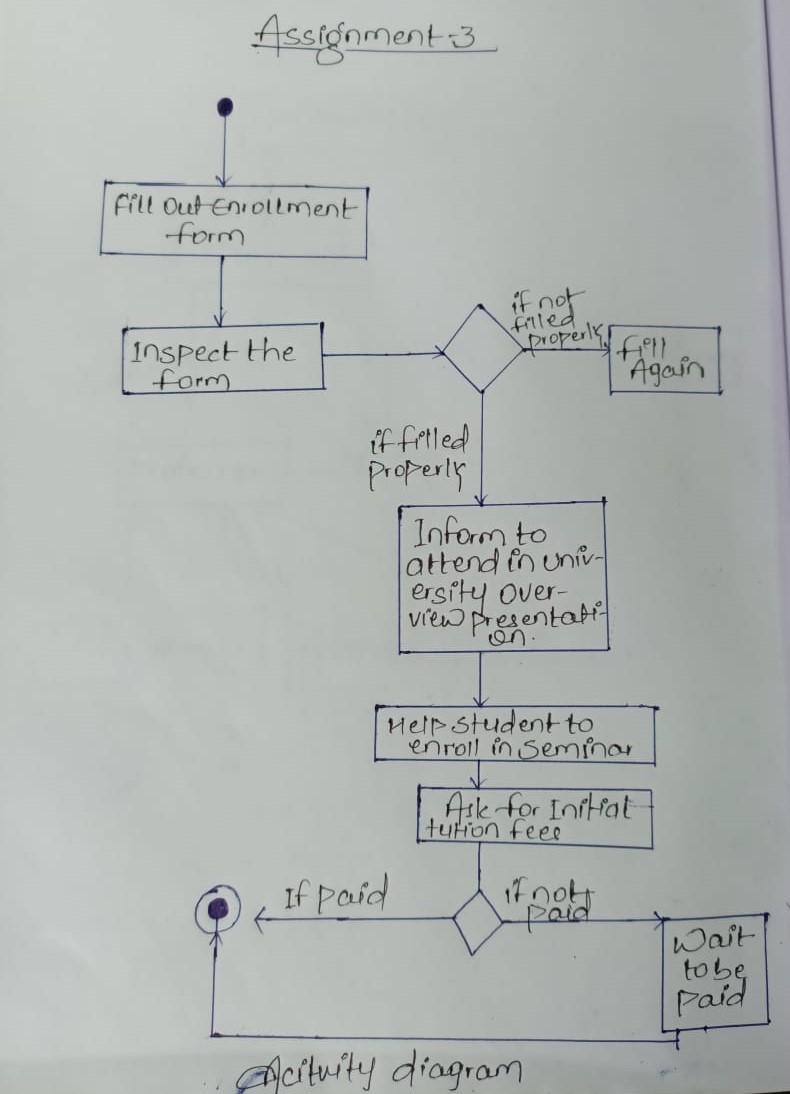 Assignment-3
Fill Out Enrollment
form
Inspect the
form
if not
filled
properly
fill
Again
if filled
properly
Inform to
attend in univ-
ersity over-
view presentati-
on.
Help student to
enroll in seminar
Ask for Initial
tution fees
If paid
if not
paid
Wait
to be
paid
Acitvity diagram